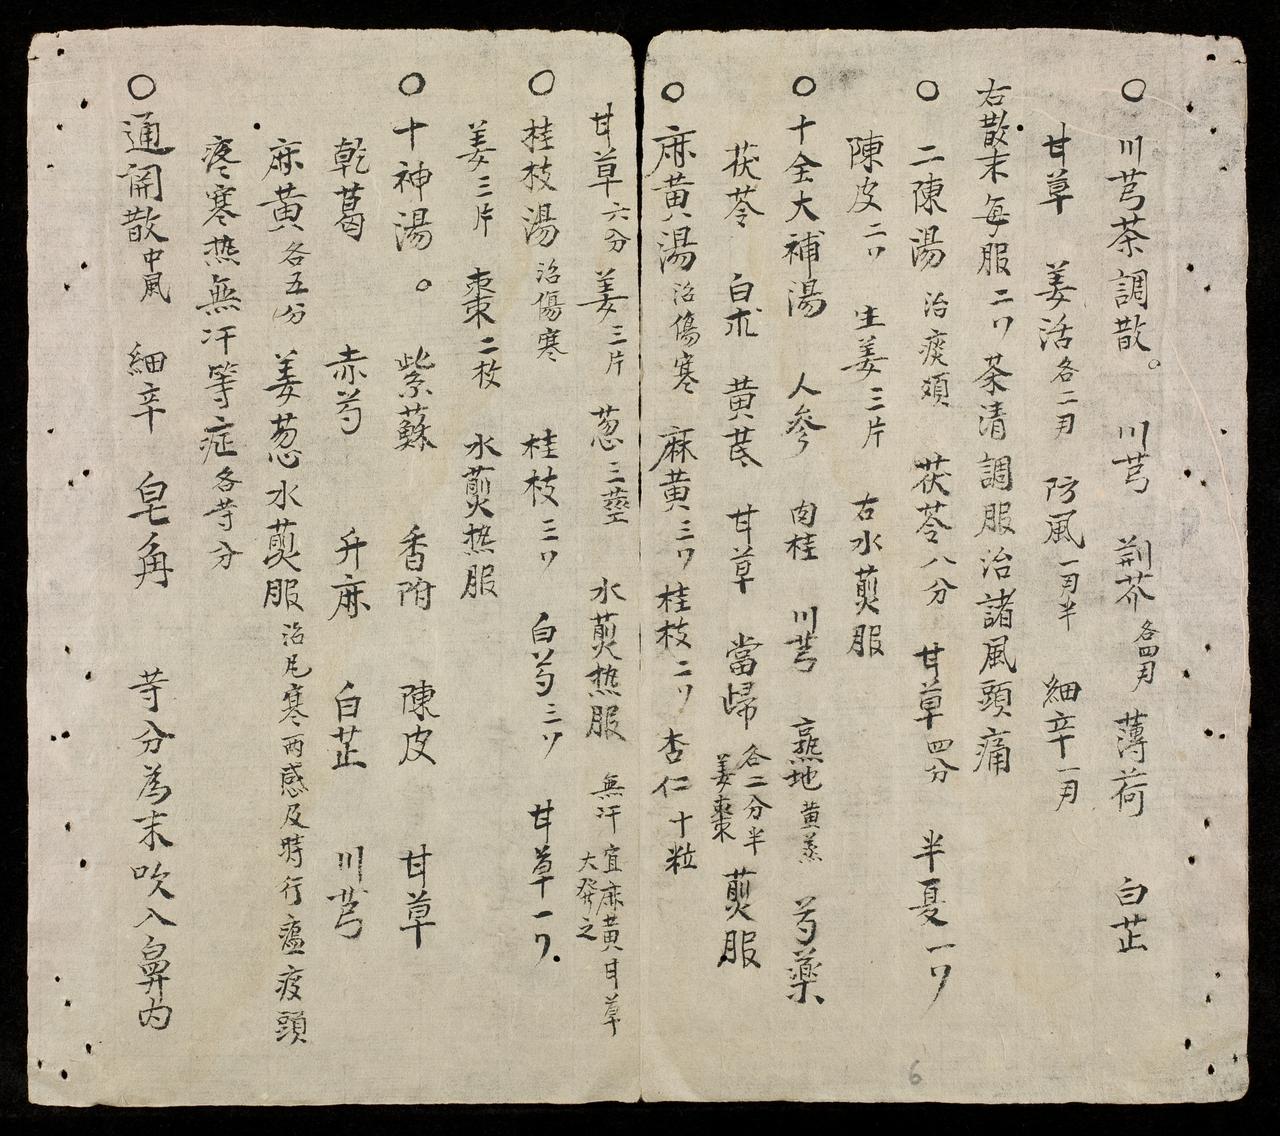 ○川芎茶調散。 川芎 荆芥各四月 薄荷 白芷
甘草 姜活各二月 防風一月半 細辛一月
右散末每服二刀茶清調服治諸風頭痛
○二陳湯 治痰 茯苓八分 甘草四分 半夏一刀
陳皮二刀 生姜三片 右水煎服
○十全大補湯 人參 肉桂 川芎 熟地黄蒸 芍藥
茯苓 白朮 黄芪 甘草 當歸各二分半姜棗煎服
○麻黄湯治傷寒 麻黄三刀桂枝二刀 杏仁十粒
甘草六分 姜三片 葱三莖 水煎热服 無汗宜麻黄甘草大發之
○桂枝湯治傷寒 桂枝三刀 白芍三刀 甘草一刀.
姜三片 棗二枚 水煎热服
○十神湯。 紫蘇 香附 陳皮 甘草
乾葛 赤芍 升麻 白芷 川芎
麻黄各五分 姜葱水煎服治凡寒两感及時行瘟疫頭
疼寒热無汗等症各等分
○通関散中風 細辛 皂角 等分為末吹入鼻内
6